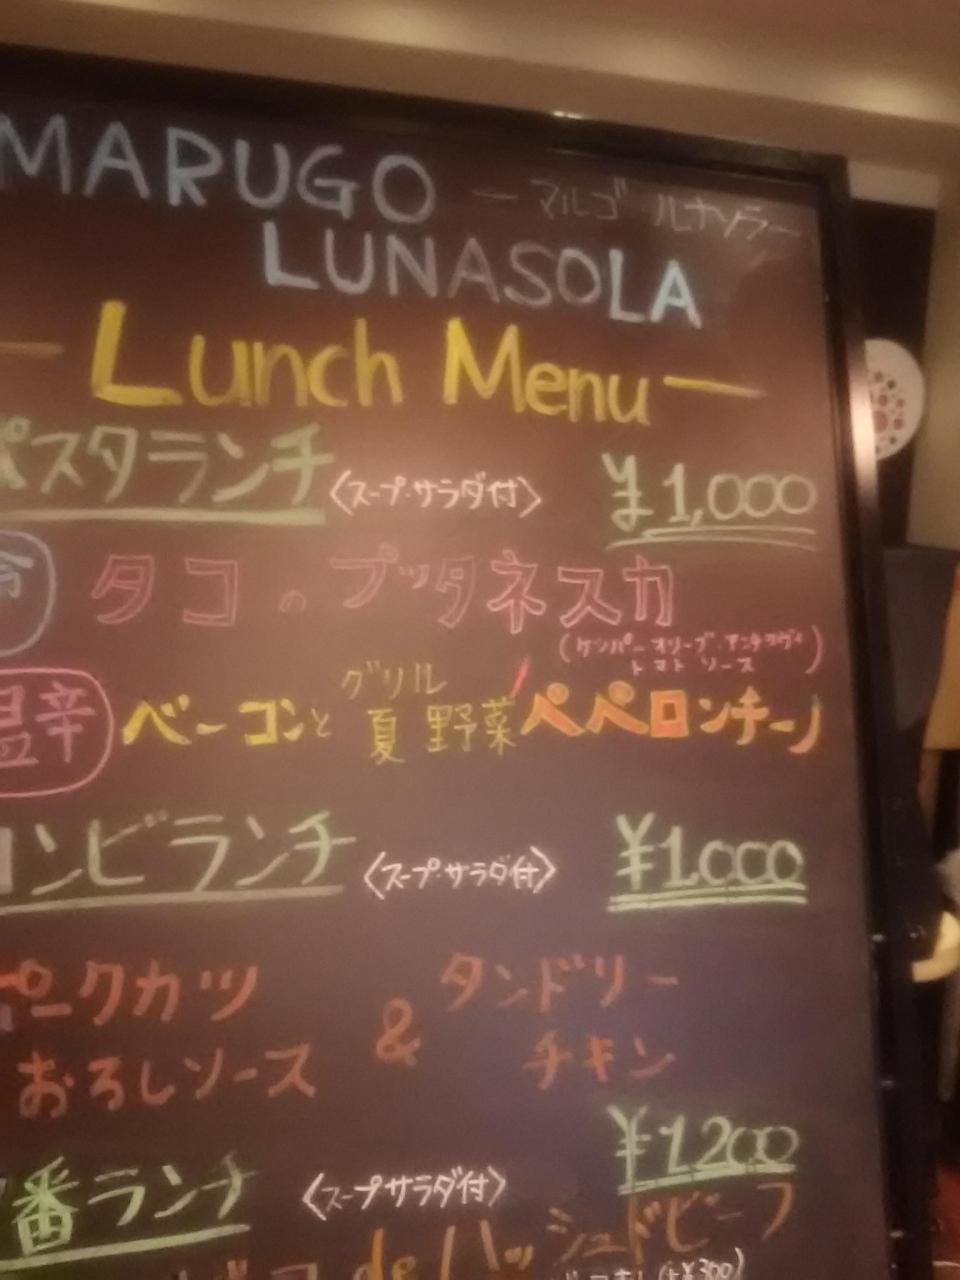 MARUGO
ーマルゴ ルナソラー
LUNASOLA
ーLunch Menuー
パスタランチ 〈スープ・サラダ付〉 ¥1,000
冷 タコのプッタネスカ
(ケッパー・オリーブ・アンチョヴィ
トマトソース)
温辛 ベーコンとグリル夏野菜ペペロンチーノ
コンビランチ 〈スープ・サラダ付〉 ¥1,000
ポークカツ & タンドリー
おろしソース チキン
¥1,200
番ランチ 〈スープサラダ付〉
deハッシュドビーフ
(+¥300)